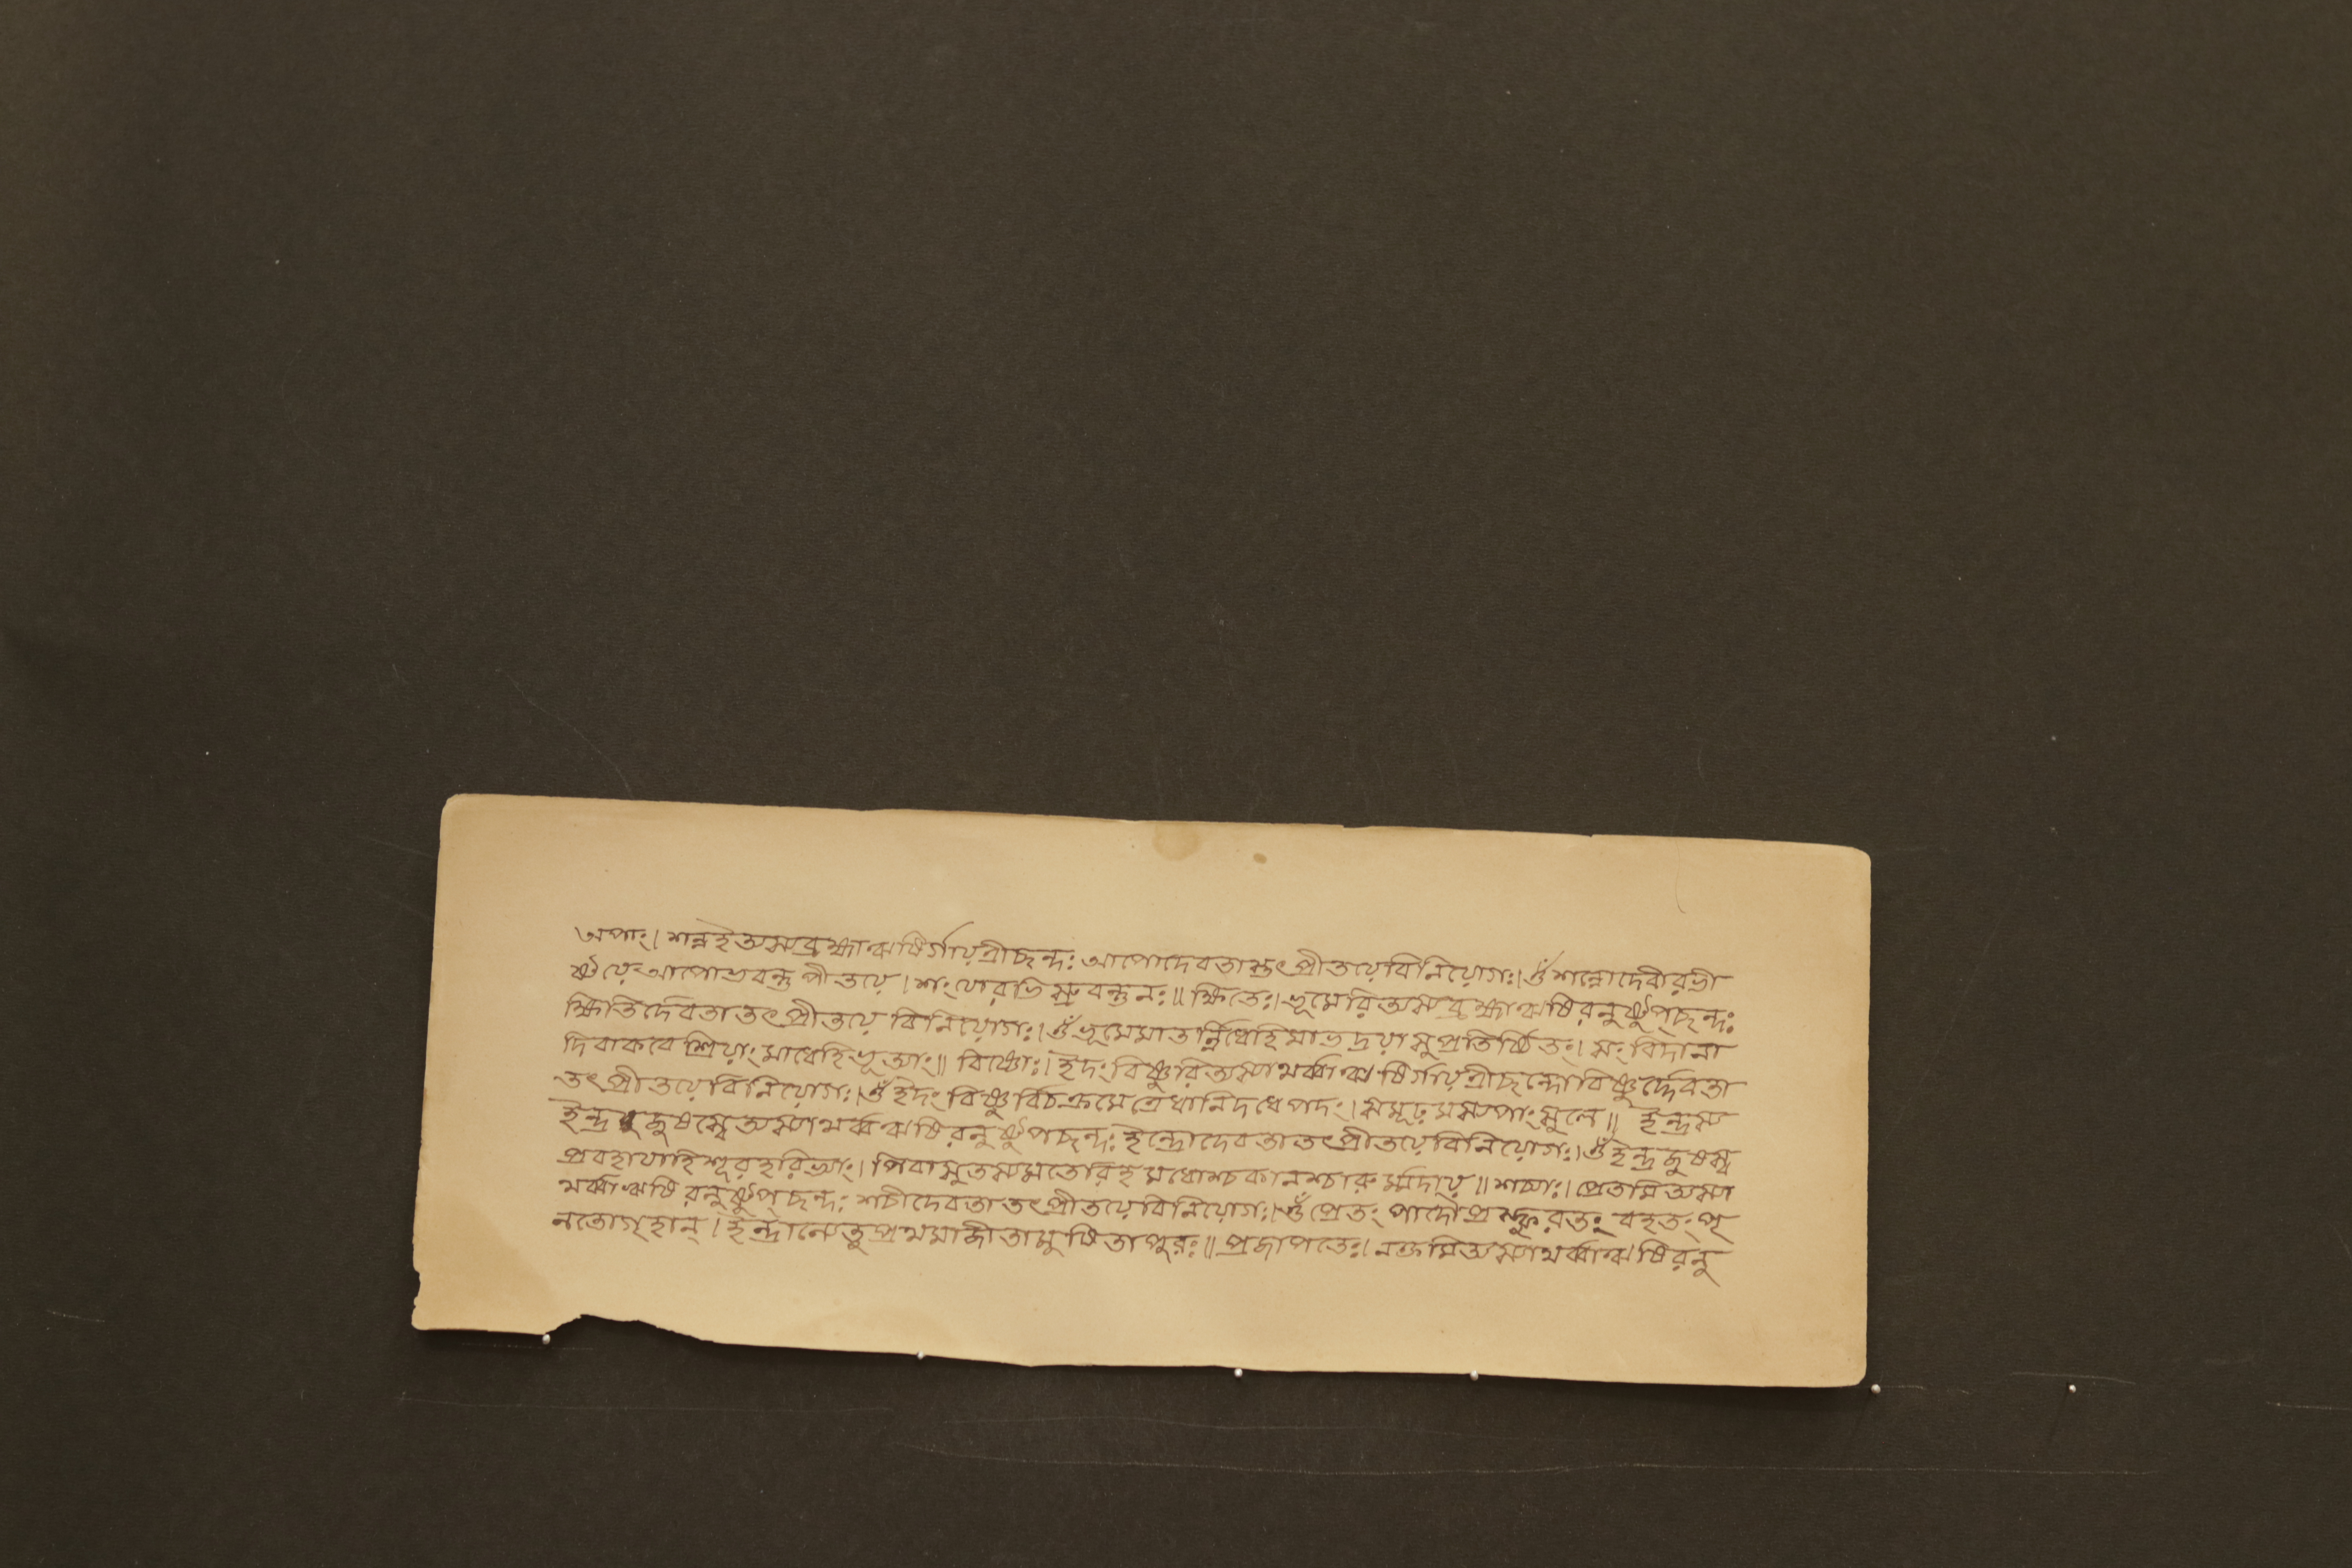 অপাং।শন্নইত্যস্যব্রহ্মাঋষির্গায়ত্রীছন্দঃ আপোদেবতাস্তৎপ্রীতয়েবিনিয়োগঃ।ওঁ শন্নোদেবীরভী
ষ্টয়েআপোভবন্তু পীতয়ে।শংযোরভিস্রুবন্তুনঃ॥ ক্ষিতেঃ।ভূমেরিত্যস্যব্রহ্মাঋষিরনুষ্টুপ্ছন্দঃ
ক্ষিতির্দেবতাতৎপ্রীতয়ে বিনিয়োগঃ।ওঁ ভূমেমাতর্ন্নিধেহিমাভদ্রয়াসুপ্রতিষ্ঠিতং।সংবিদানা
দিবাকবেশ্রিয়াংমাধেহিভূত্যাং॥ বিষ্ণোঃ।ইদংবিষ্ণুরিত্যস্যাথর্ব্বাঋষির্গায়ত্রীছন্দোবিষ্ণুর্দ্দেবতা
তৎপ্রীতয়েবিনিয়োগঃ।ওঁ ইদংবিষ্ণুর্বিচক্রমেত্রেধানিদধেপদং।সমূঢ়মস্যপাংসুলে॥ ইন্দ্রস্য
ইন্দ্রজুষস্বেত্যস্যাথর্ব্বঋষিরনুষ্টুপছন্দঃ ইন্দ্রোদেবতাতৎপ্রীতয়েবিনিয়োগঃ।ওঁ ইন্দ্রজুষস্ব
প্রবহাযাহিশূরহরিভ্যাং।পিবাসুতস্যমতেরিহমধোশ্চকানশ্চারুর্ম্মদায়॥শচ্যাঃ।প্রেতমিত্যস্যা
থর্ব্বাঋষিরনুষ্টুপ্ছন্দঃ শচীদেবতাতৎপ্রীতয়েবিনিয়োগঃ।ওঁ প্রেতং পাদৌপ্রস্ফুরতং বহতংপৃ
নতোগৃহান্।ইন্দ্রান্যেতুপ্রথমাজীতামুষিতাপুরঃ॥প্রজাপতেঃ।নক্তমিত্যস্যাথর্ব্বাঋষিরনু